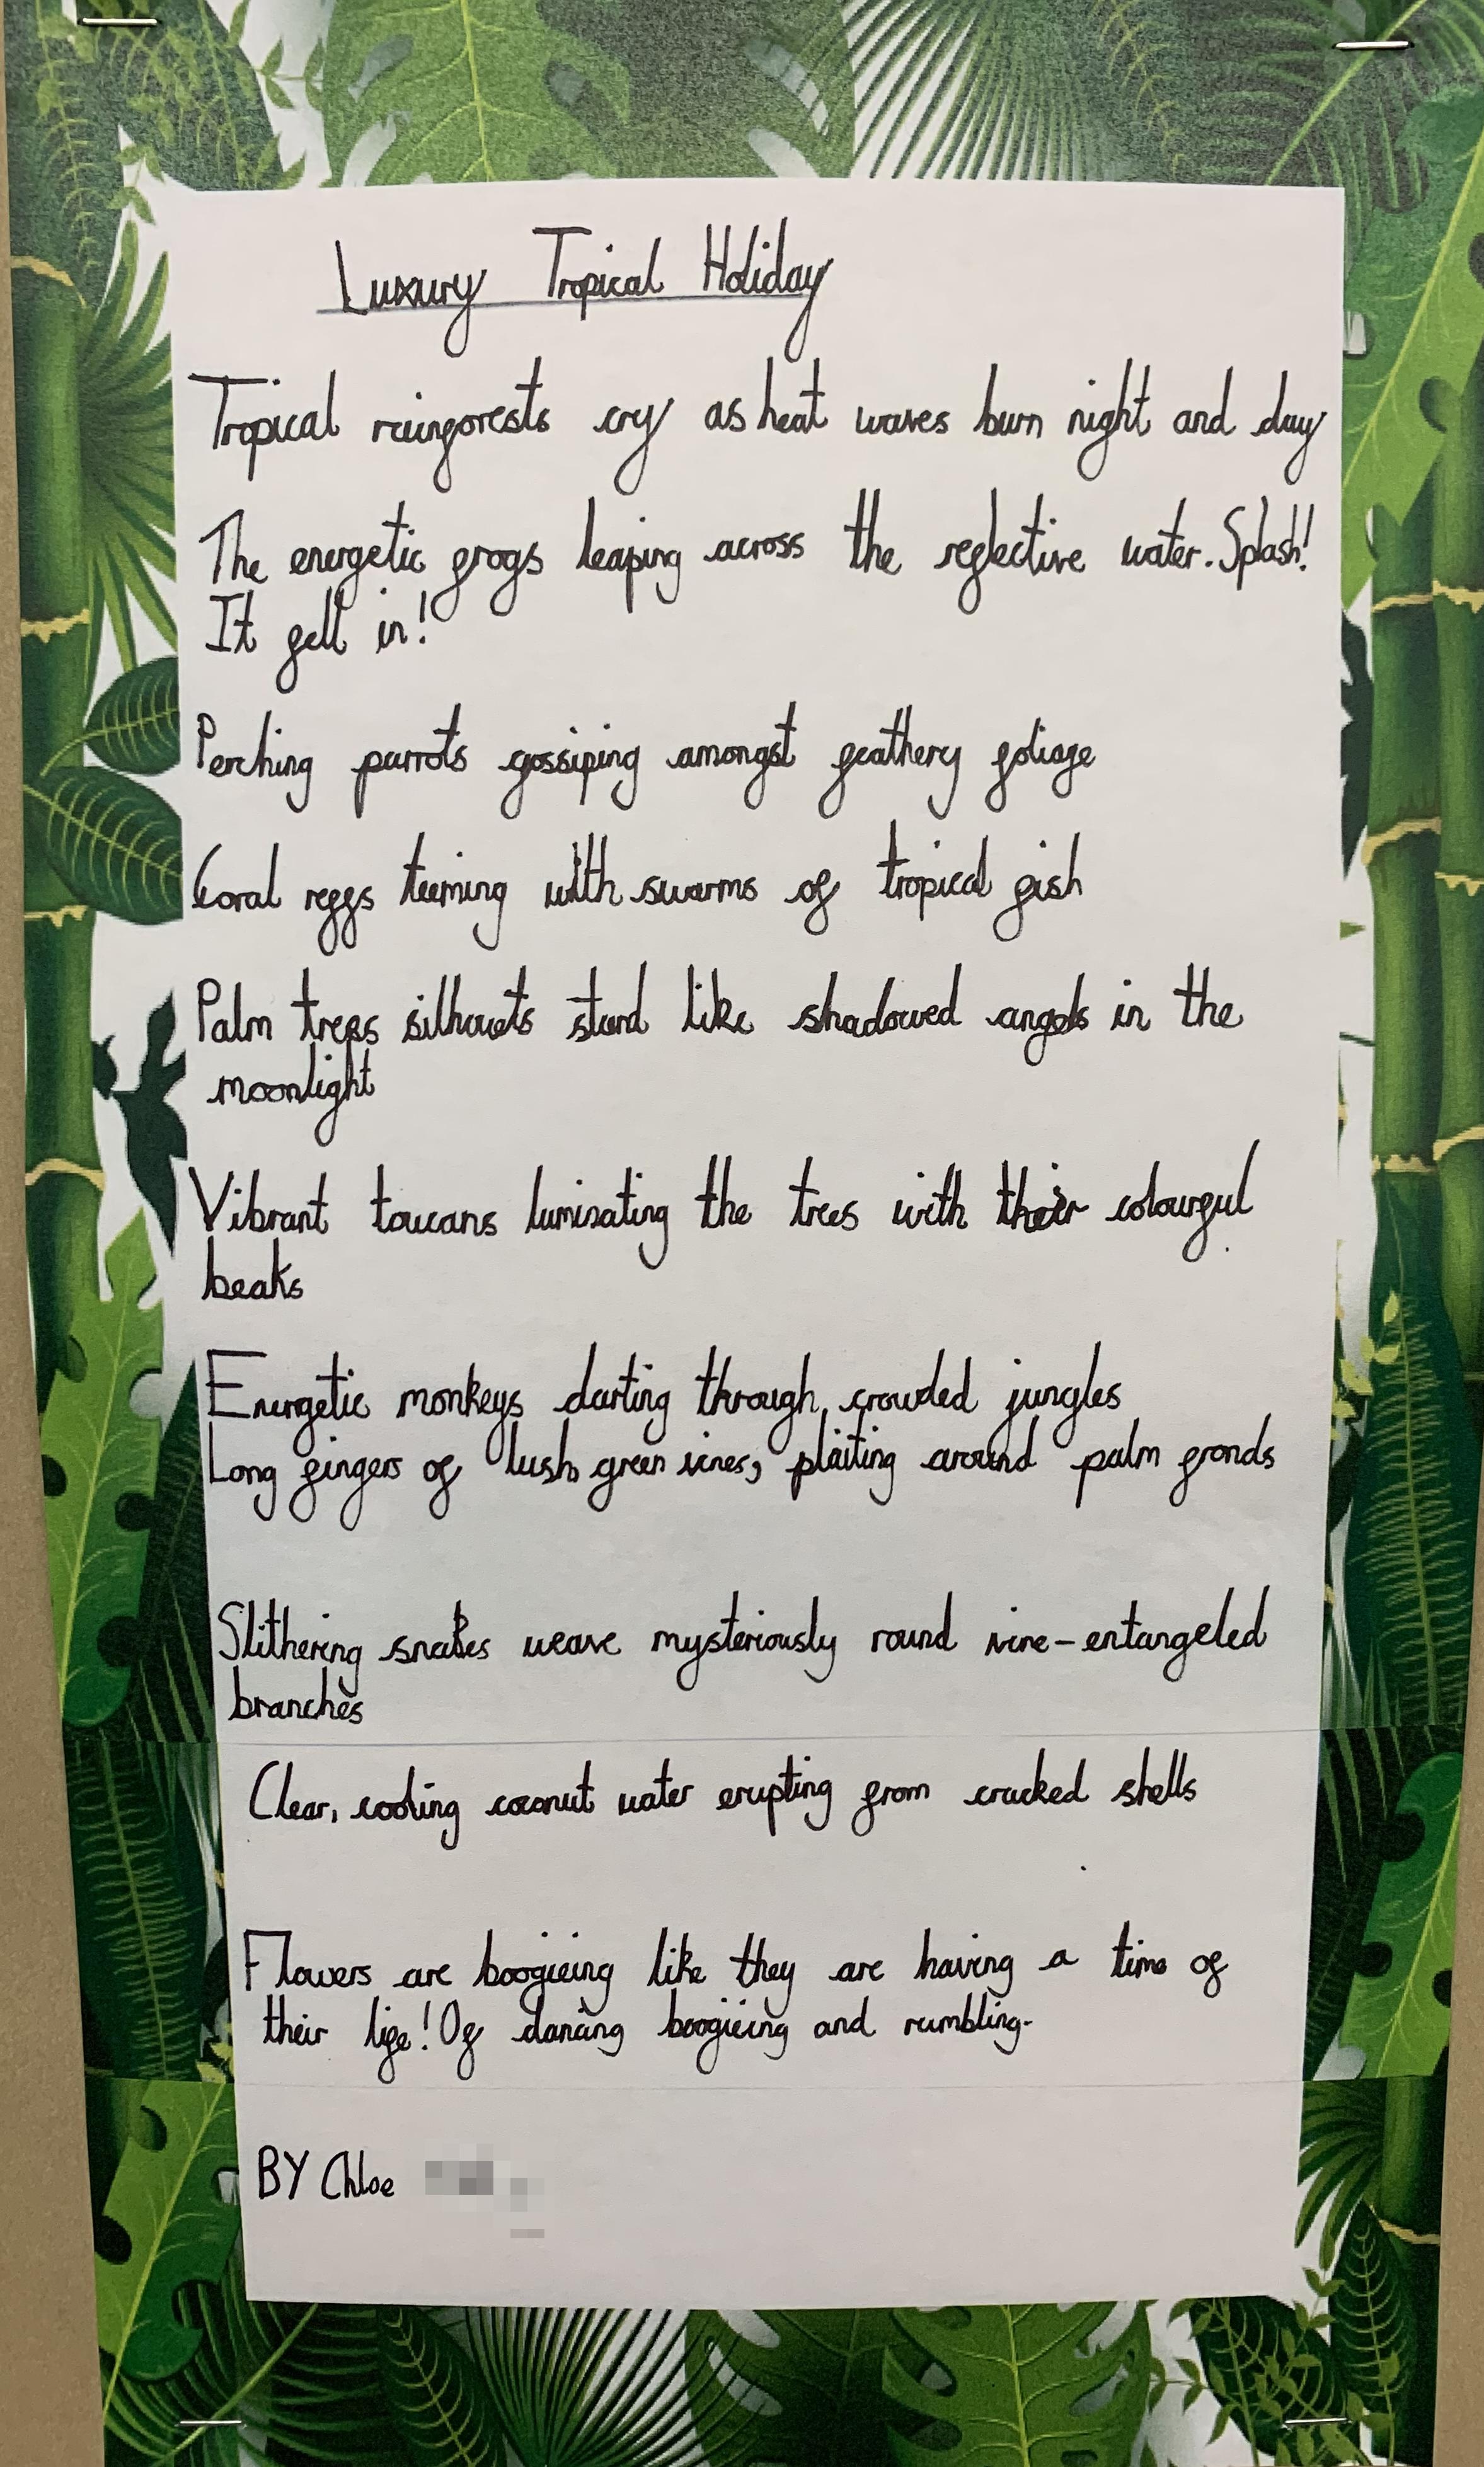 Luxury Tropical Holiday
Tropical rainforests cry as heat waves burn night and day
The energetic frogs leaping across the reflective water. Splash!
It fell in!
Perching parrots gossiping amongst feathery foliage
Coral reefs teeming with swarms of tropical fish
Palm trees silhouets stand like shadowed angels in the
moonlight
Vibrant toucans luminating the trees with their colourful
beaks
Energetic monkeys darting through crowded jungles
Long fingers of lush green vines, plaiting around palm fronds
Slithering snakes weave mysteriously round vine-entangeled
branches
Clear, cooling coconut water erupting from cracked shells
Flowers are boogieing like they are having a time of
their life! Of dancing boogieing and rumbling.
BY Chloe